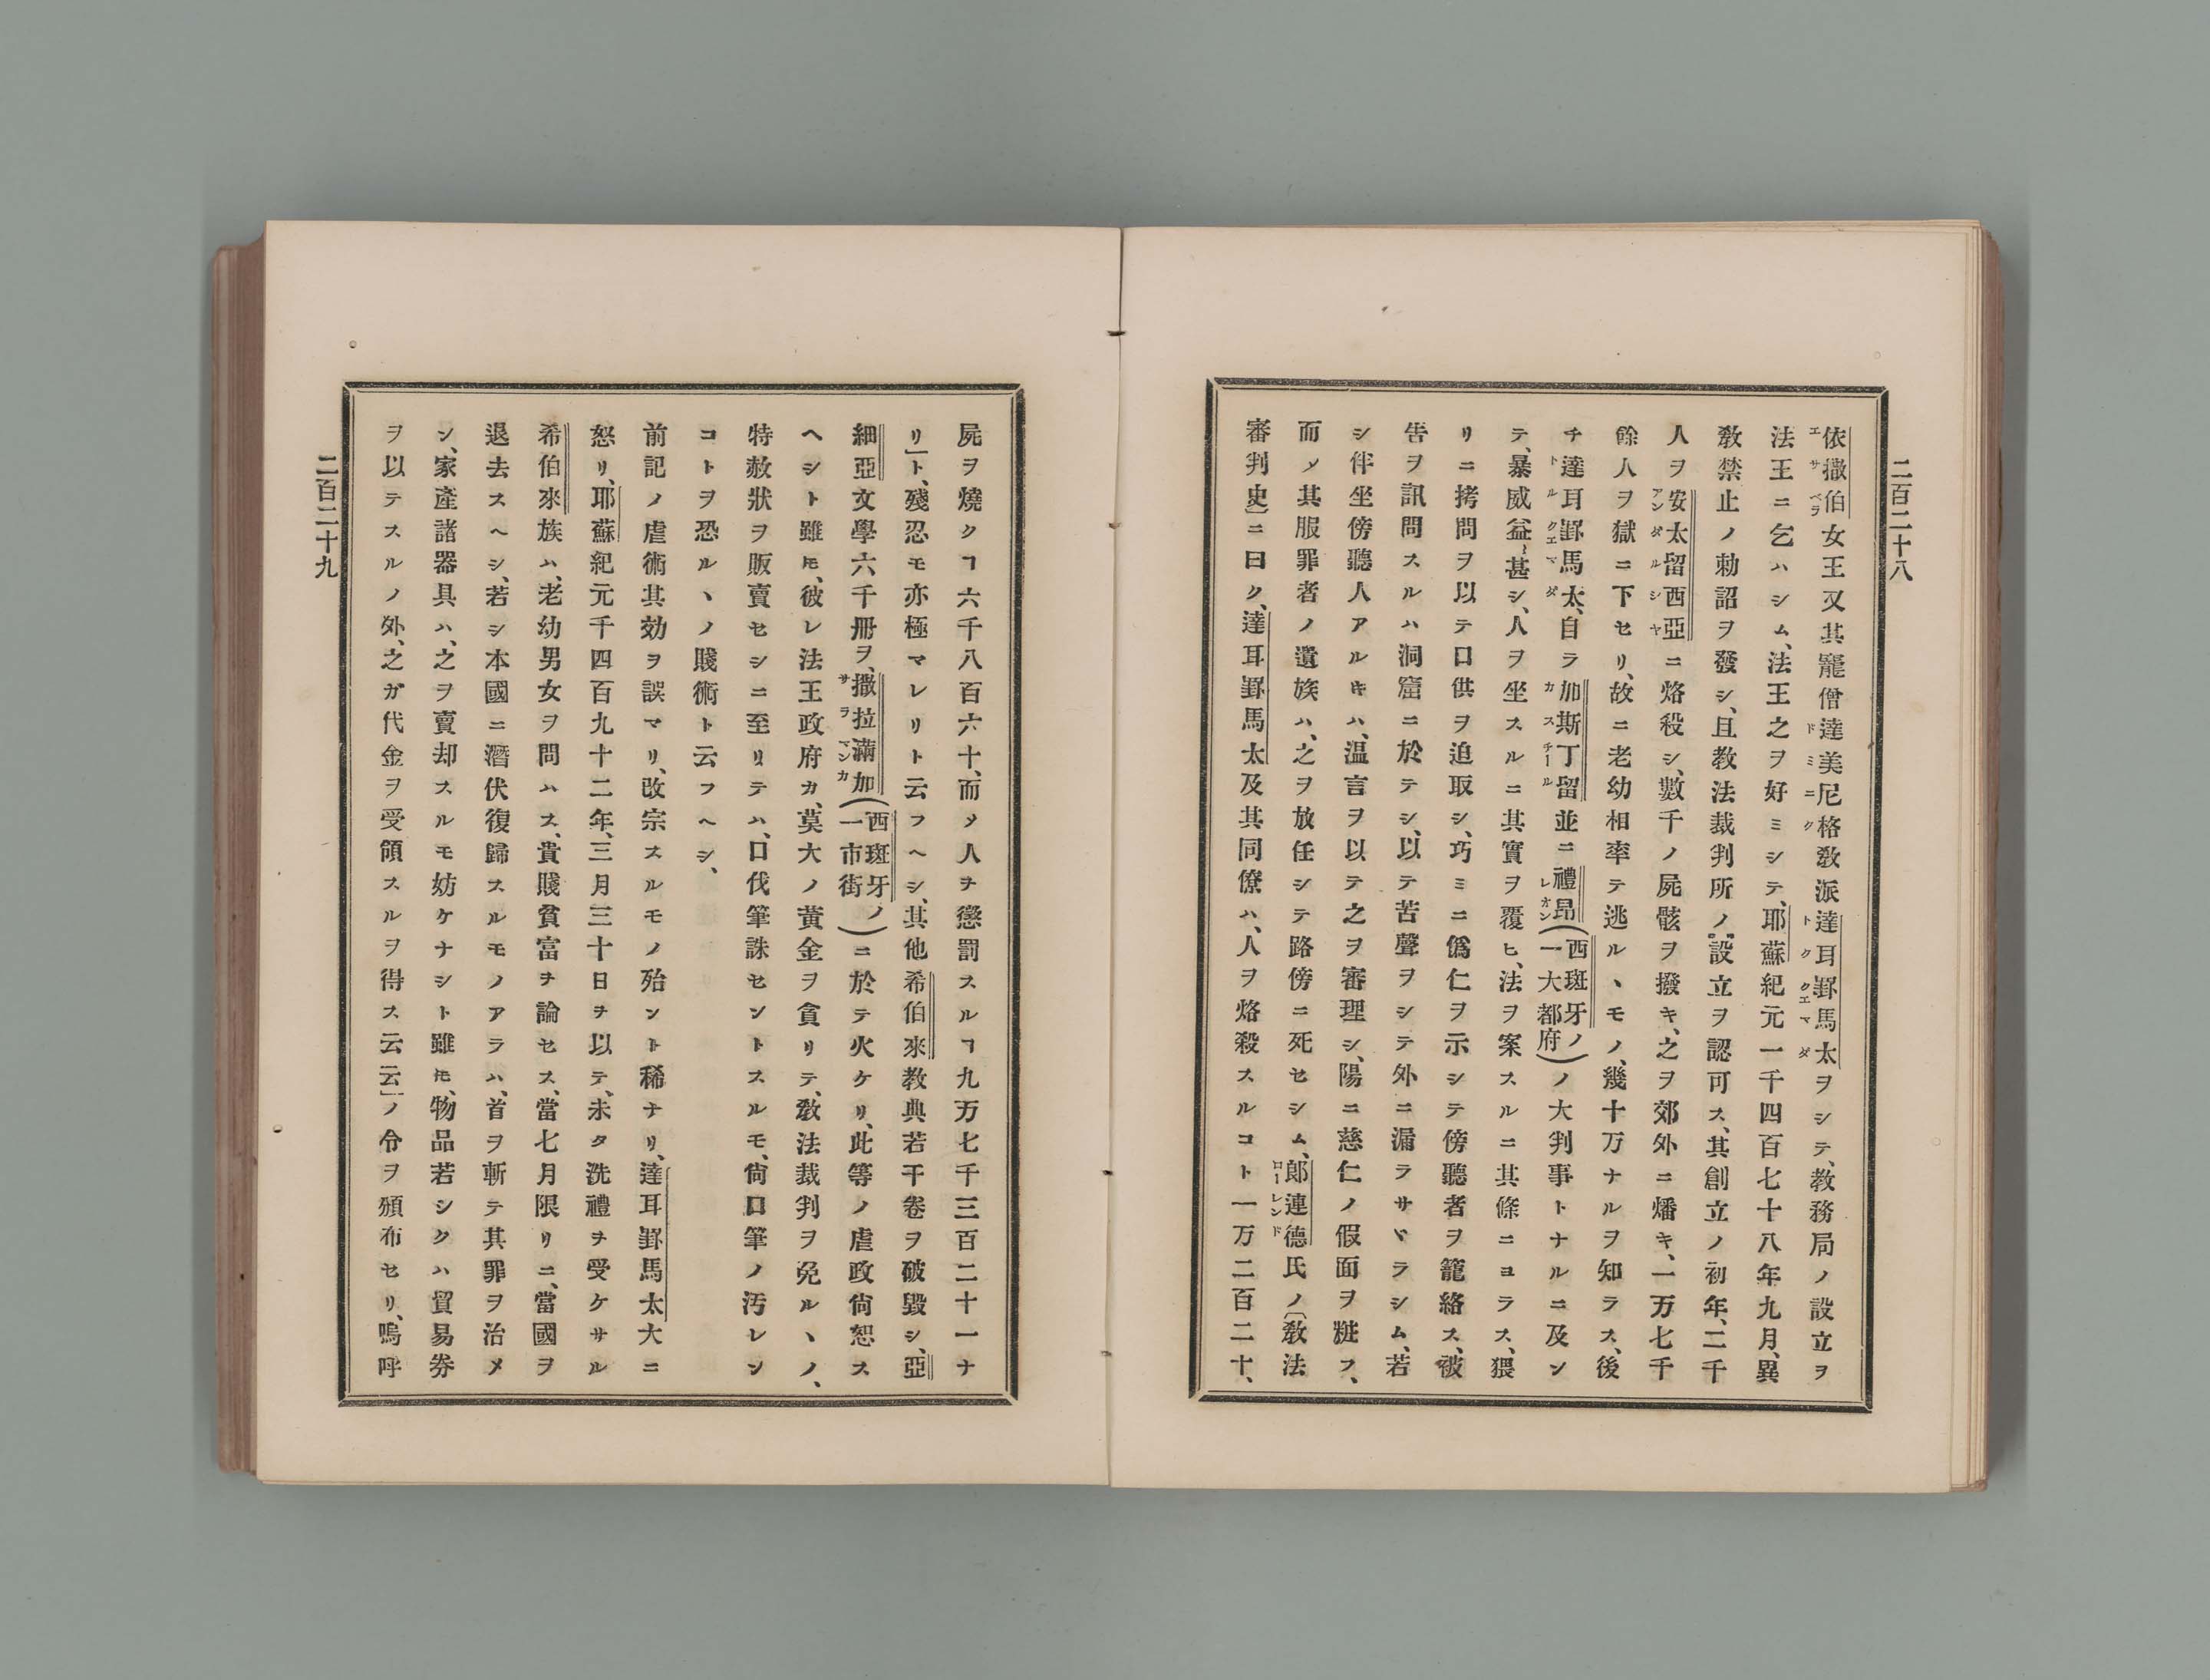 二百二十八
依撒伯女王又其寵僧達美尼格敎派達耳罫馬太ヲシテ、教務局ノ設立ヲ
エサベラ ドミニク トクエマダ
法王ニ乞ハシム、法王之ヲ好ミシテ、耶蘇紀元一千四百七十八年九月、異
敎禁止ノ勅詔ヲ發シ、且教法裁判所ノ、設立ヲ認可ス、其創立ノ初年、二千
人ヲ安太留西亞ニ烙殺シ、數千ノ屍骸ヲ撥キ、之ヲ郊外ニ燔キ、一万七千
アンダルシヤ
餘人ヲ獄ニ下セリ、故ニ老幼相率テ逃ルヽモノ、幾十万ナルヲ知ラス、後
チ達耳罫馬太、自ラ加斯丁留並ニ禮昂(西斑牙ノ一大都府)ノ大判事トナルニ及ン
トルクエマダ カスチール レオン
テ、暴威益〻甚シ、人ヲ坐スルニ其實ヲ覆ヒ、法ヲ案スルニ其條ニヨラス、猥
リニ拷問ヲ以テ口供ヲ追取シ、巧ミニ僞仁ヲ示シテ傍聽者ヲ籠絡ス、被
告ヲ訊問スルハ洞窟ニ於テシ、以テ苦聲ヲシテ外ニ漏ラサヾラシム、若
シ伴坐傍聽人アルキハ、温言ヲ以テ之ヲ審理シ、陽ニ慈仁ノ假面ヲ粧フ、
而メ其服罪者ノ遺族ハ、之ヲ放任シテ路傍ニ死セシム、郞連德氏ノ〔敎法
ローレンド
審判史〕ニ曰ク、達耳罫馬太及其同僚ハ、人ヲ烙殺スルコト一万二百二十、
屍ヲ燒クヿ六千八百六十、而メ人チ懲罰スルヿ九万七千三百二十一ナ
リ」ト、殘忍モ亦極マレリト云フヘシ、其他希伯來教典若干卷ヲ破毀シ、亞
細亞文學六千册ヲ、撒拉滿加(西斑牙ノ一市街)ニ於テ火ケリ、此等ノ虐政尙恕ス
サラマンカ
ヘシト雖𪜈、彼レ法王政府カ、莫大ノ黃金ヲ貪リテ、敎法裁判ヲ免ルヽノ、
特赦狀ヲ販賣セシニ至リテハ、口伐筆誅セントスルモ、尙口筆ノ汚レン
コトヲ恐ルヽノ賤術ト云フヘシ、
前記ノ虐術其効ヲ誤マリ、改宗スルモノ殆ント稀ナリ、達耳罫馬太大ニ
怒リ、耶蘇紀元千四百九十二年、三月三十日チ以テ、未タ洗禮チ受ケサル
希伯來族ハ、老幼男女ヲ問ハス、貴賤貧富チ論セス、當七月限リニ、當國ヲ
退去スヘシ、若シ本國ニ潛伏復歸スルモノアラハ、首ヲ斬テ其罪ヲ治メ
ン、家產諸器具ハ、之ヲ賣却スルモ妨ケナシト雖𪜈、物品若シクハ貿易券
ヲ以テスルノ外、之ガ代金ヲ受領スルヲ得ス云云」ノ令ヲ頒布セリ、嗚呼
二百二十九